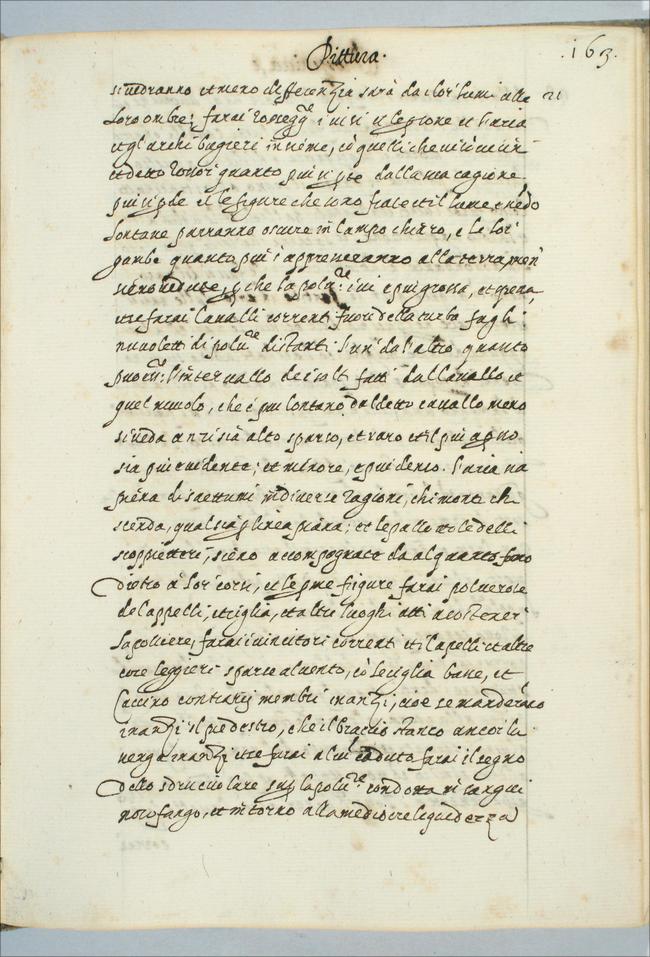 Pittura.
.163.
si uedranno et meno differenzia sarà da i lor lumi alla
loro ombre; farai i uisi et l'aria
et gl'archibugieri insieme, cò quelli che
et detto quanto piu si dalla sua cagione
piu si et le figure che sono frate et il lume,
lontane parranno oscure in campo chiaro, e le lor
gambe quanto piu s'appresseranno alla terra, men
sieno uedute, p che la polue. è iui e piu grossa, et
et se farai caualli correnti fuori della turba fa gli
nuuoletti di polue distanti l'un' da l'altro quanto
puo l'interuallo de i salti fatti dal cauallo et
quel nuuolo, che è piu lontano dal detto cauallo meno
si ueda anzi sia alto sparso, et raro et il piu
sia piu euidente; et minore, e piu denso. l'aria sia
piena di saettumi in diuerse ragioni, chi monte chi
scenda, qual sia p linea piana; et le pallottole delli
scoppiettieri, sieno accompagnate da alquanto fumo
dietro à lor corsi, et le pme figure farai poluerose
de cappelli, et ciglia, et altri luoghi atti a sostener'
la poluere, farai i uincitori correnti et i capelli et altre
cose leggieri sparse al uento, cò le ciglia basse, et
caccino contrarij membri inanzi, cioe se manderano
inanzi il pie destro, che il braccio stanco ancor lu
uenga inanzi et se farai alcū caduto farai il segno
dello sdrucciolare su p la polue. condotta in sangui
noso fango, et intorno alla mediocre liquidezza